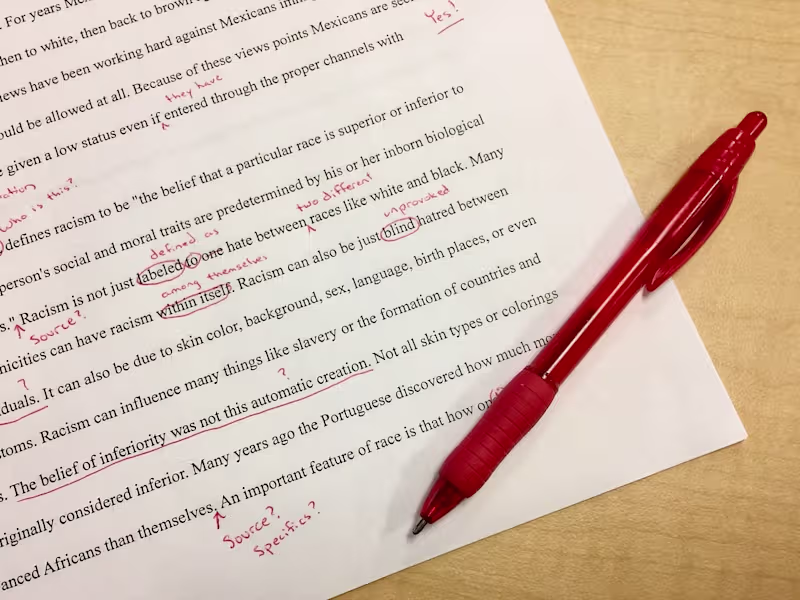 . For years
hen to white, then back to brown
Yes!
iews have been working hard against Mexicans
ould be allowed at all. Because of these views points Mexicans are
they have
e given a low status even if entered through the proper channels with
Who is this?
defines racism to be "the belief that a particular race is superior or inferior to
person's social and moral traits are predetermined by his or her inborn biological
two different
s." Racism is not just labeled to one hate between races like white and black. Many
defined as
unprovoked
Source?
among themselves
nicities can have racism within itself. Racism can also be just blind hatred between
?
duals. It can also be due to skin color, background, sex, language, birth places, or even
?
stoms. Racism can influence many things like slavery or the formation of countries and
s. The belief of inferiority was not this automatic creation. Not all skin types or colorings
riginally considered inferior. Many years ago the Portuguese discovered how much
anced Africans than themselves. An important feature of race is that how
Source?
Specifics?